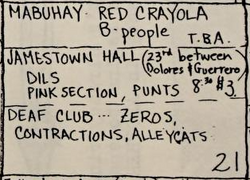 MABUHAY RED CRAYOLA
B-people
T.B.A.
JAMESTOWN HALL (23rd between Dolores & Guerrero)
DILS
PINK SECTION, PUNTS 8:30 $3
DEAF CLUB ... ZEROS,
CONTRACTIONS, ALLEYCATS
21